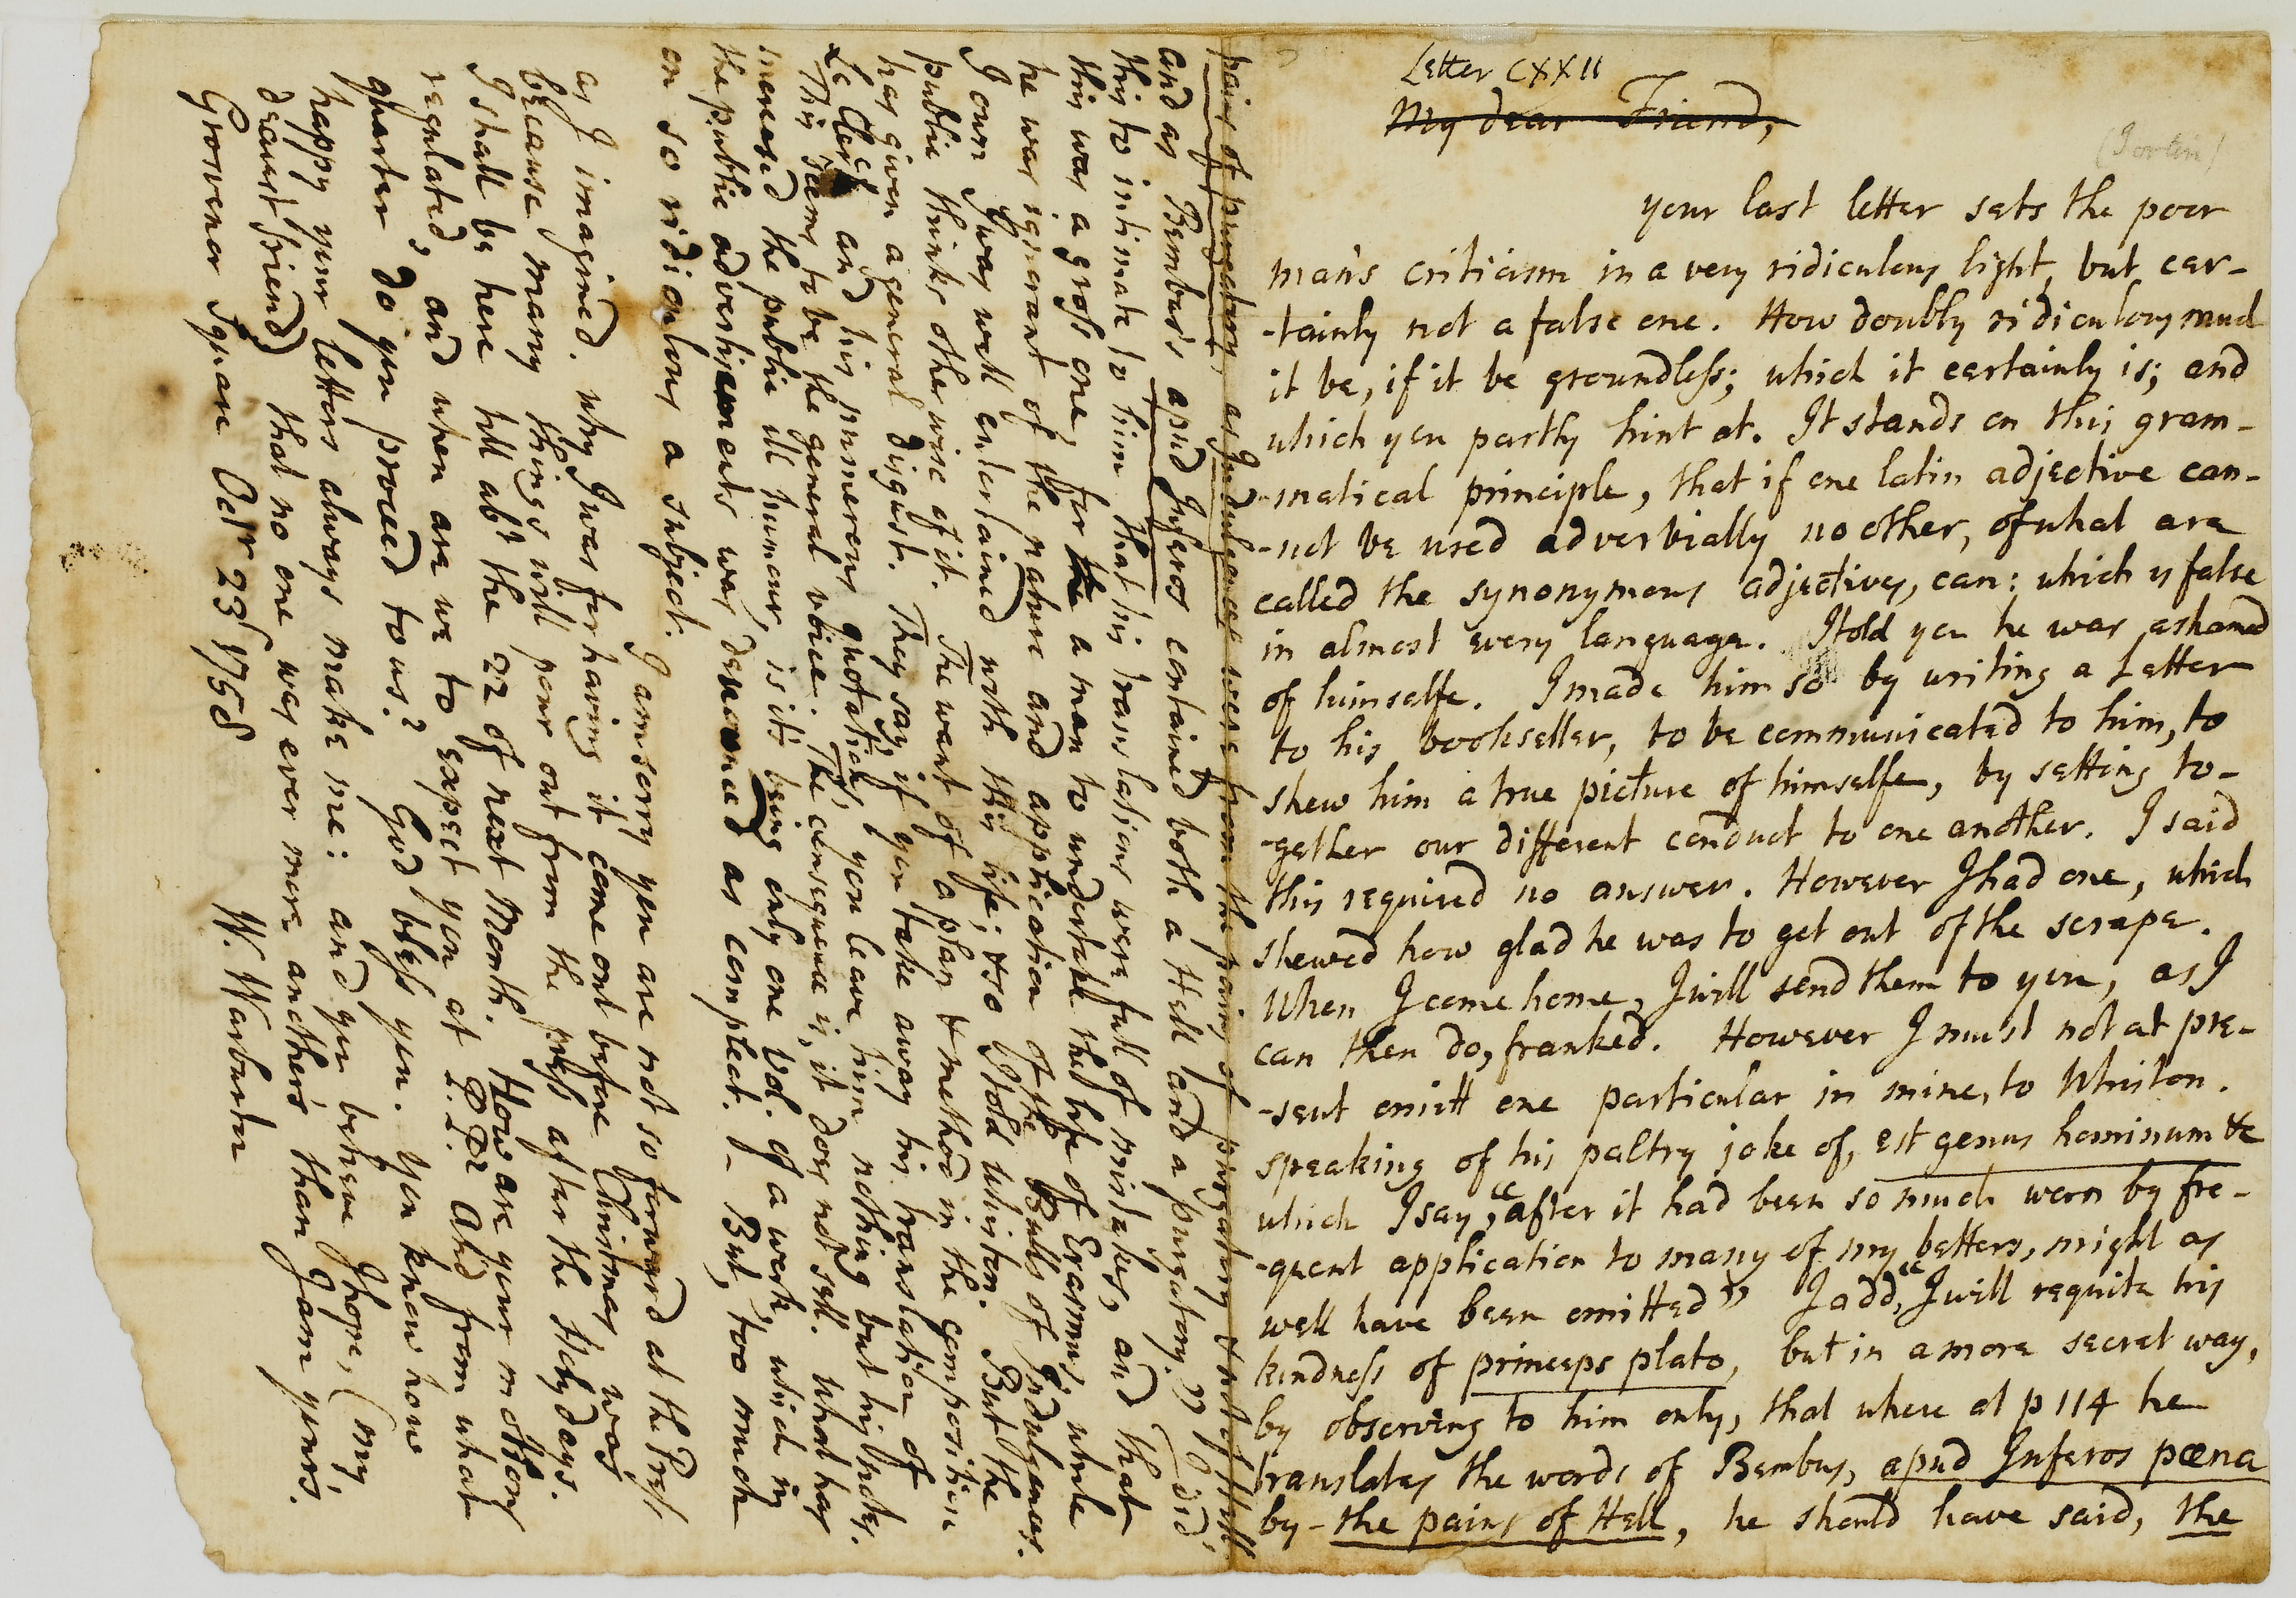 Letter CXXII
My dear Friend,
(Jortin)
your last letter sets the poor
man's criticism in a very ridiculous light, but cer-
-tainly not a false one. How doubly ridiculous must
it be, if it be groundless; which it certainly is; and
which you partly hint at. It stands on this gram-
-matical principle, that if one latin adjective can-
-not be used adverbially no other, of what are
called the synonymous adjectives, can: which is false
in almost every language. I told you he was ashamed
of himselfe. I made him so by writing a Letter
to his bookseller, to be communicated to him, to
shew him a true picture of himselfe, by setting to-
-gether our different conduct to one another. I said
this required no answer. However I had one, which
shewed how glad he was to get out of the scrape.
When I come home, I will send them to you, as I
can then do, franked. However I must not at pre-
-sent omitt one particular in mine, to Whiston.
speaking of his paltry joke of, est genus hominum &c
which I say, "after it had been so much worn by fre-
-quent application to many of my betters, might as
well have been omitted" I add, "I will requite his
kindness of princeps plato, but in a more secret way,
by observing to him only, that where at p 114 he
translates the words of Bembus, apud Inferos pœna
by - the pains of Hell, he should have said, the
pains of purgatory, as Indulgences were from the pains of purgatory & not of Hell
and as Bembus's apud Inferos contained both a Hell and a purgatory." I did,
this to intimate to him that his translations were full of mistakes, and that
this was a gross one, for the a man to undertake the life of Erasmus, while
he was ignorant of the nature and application of the Bulls of Indulgences.
I own I was well entertained with this life; & so I told Whiston. But the
public thinks otherwise of it. The want of a plan & method in the composition
has given a general disgust. They say, if you take away his translation of
Le Clerc and his numerous quotations, you leave him nothing but his notes.
This seems to be the general voice. The consequence is, it does not sell. What has
increased the public ill humour, is it's being only one Vol. of a work, which in
the public advertisements was denounced as compleat. — But, too much
on so ridiculous a subject.
I am sorry you are not so forward at the Press
as I imagined. why I was for having it come out before Christmas was
because many things will pour out from the press after the Holydays.
I shall be here till abt the 22 of next Month. How are your motions
regulated, and when are we to expect you at P.P? And from what
quarter do you proceed to us? God bless you. You know how
happy your letters always make me: and you believe I hope, (my
dearest friend) that no one was ever more another's than I am yours.
W. Warburton
Grosvenor Square Octr 23d 1758